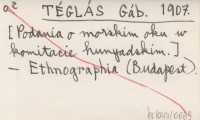 a²
TÉGLÁS Gáb. 1907.
[Podania o morskim oku w
komitacie hunyadskim.]
— Ethnographia (Budapest).